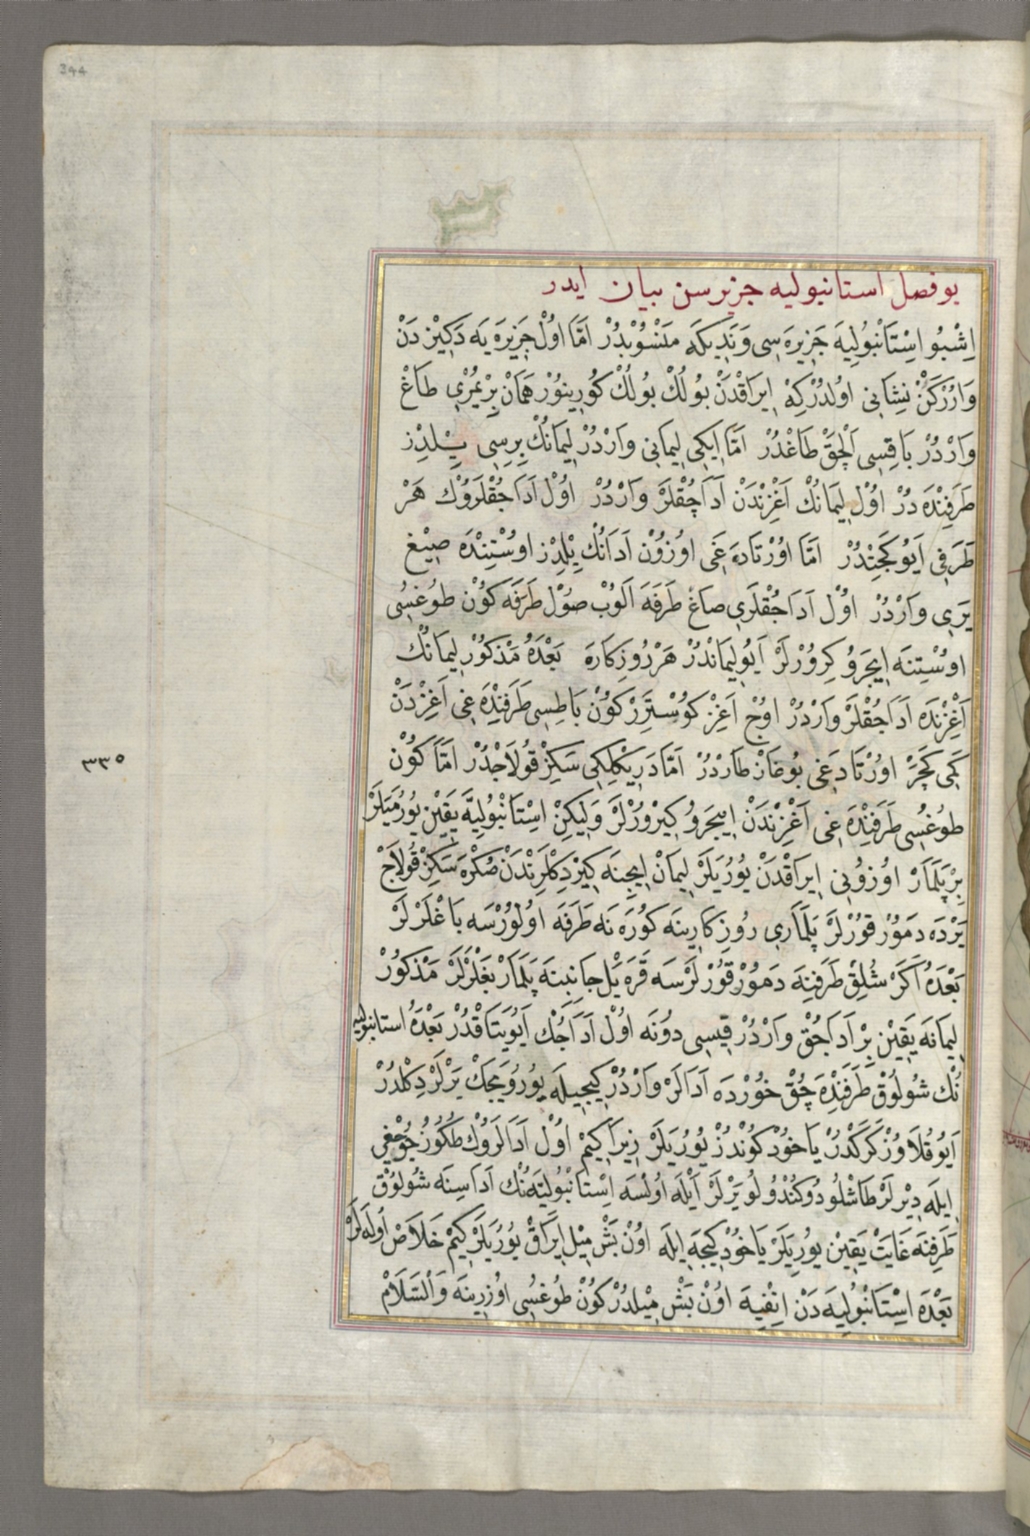 344
بو فصل استانبوليه جزيرسن بيان ايدر
اِشْبُو اِسْتَانْبُولِيَه جَزِيرَه سِى وَنَدِيكَه مَنْسُوبْدُرْ اَمَّا اُولْ جَزِيرَه يَه دَكِيزْدَنْ
وَارُرْكَنْ نِشَانِى اُولْدُرْكِه اِيرَاقْدَنْ بُولُكْ بُولُكْ كُورِينُورْ هَمَانْ بِرْ يُمْرِى طَاغْ
وَارْدُرْ بَاقِيسِى اَلْچَقْ طَاغْدُرْ اَمَّا اِيكِى لِيمَانِى وَارْدُرْ لِيمَانُكْ بِرِيسِى يِيلْدِزْ
طَرَفِنْدَه دُرْ اُولْ لِيمَانُكْ اَغْزِنْدَنْ اَدَاجُقْلَرْ وَارْدُرْ اُولْ اَدَاجُقْلَرُوكْ هَرْ
طَرَفِى اَيُو كَچِتْدُرْ اَمَّا اُورْتَادَه غِى اُوزُونْ اَدَانُكْ يِلْدِزْ اُوسْتِنْدَه صِيغْ
يَرِى وَارْدُرْ اُولْ اَدَاجُقْلَرِى صَاغْ طَرَفَه اَلُوبْ صُولْ طَرَفَه كُونْ طُوغُسِى
اُوسْتِنَه اِيچَرُو كِرُورْلَرْ اَيُو لِيمَانْدُرْ هَرْ رُوزِكَارَه بَعْدَهُ مَذْكُورْ لِيمَانُكْ
اَغْزِنْدَه اَدَاجُقْلَرْ وَارْدُرْ اُوچْ اَغِزْ كُوسْتَرِرْ كُونْ بَاطِسِى طَرَفِنْدَه غِى اَغِزْدَنْ
كَمِى كَچَرْ اُورْتَادَغِى بُوغَازْ طَارْدُرْ اَمَّا دَرِيكْلِكِى سَكِزْ قُولَاجْدُرْ اَمَّا كُونْ
طُوغُسِى طَرَفِنْدَه غِى اَغْزِنْدَنْ اِيچَرُو كِيرُورْلَرْ وَلِيكِنْ اِسْتَانْبُولِيَه يَقِينْ يُورُمَيَلَرْ
بِرْ پَلَمَارْ اُوزُونِى اِيرَاقْدَنْ يُورُيَلَرْ لِيمَانْ اِيچِنَه كِيرْدِكْلَرِنْدَنْ صُكْرَه سَكِزْ قُولَاجْ
يَرْدَه دَمُورْ قُورْلَرْ پَلَمَارِى رُوزِكَارِينَه كُورَه نَه طَرَفَه اُولُورْسَه بَاغْلَرْلَرْ
بَعْدَهُ اَكَرْ شُلِقْ طَرَفِنَه دَمُورْ قُورْلَرْسَه قَرَه يَلْ جَانِبِنَه پَلَمَارْ بَغْلَرْلَرْ مَذْكُورْ
لِيمَانَه يَقِينْ بِرْ اَدَاجُقْ وَارْدُرْ قِيسِى دُونَه اُولْ اَدَاجُكْ اَيُو يَتَاقْدُرْ بَعْدَهُ استانبوليه
نُكْ شُولُوقْ طَرَفِنْدَه چُقْ خُورْدَه اَدَالَرْ وَارْدُرْ كِيجِيلَه يُورُويَجَكْ يَرْلَرْ دِكْلْدُرْ
اَيُو قُلَاوُزْ كَرَكْدُرْ يَاخُودْ كُونْدُزْ يُورُيَلَرْ زِيرَا كِيمْ اُولْ اَدَالَرُوكْ طُكُوزْجُوغِى
اِيلَه دِيرْلَرْ طَاشْلُو دُوكُنْدُولُو يَرْلَرْ اَيْلَه اُولْسَه اِسْتَانْبُولِيَه نُكْ اَدَاسِنَه شُولُوقْ
طَرَفِنَه غَايَتْ يَقِينْ يُورِيَلَرْ يَاخُودْ كِيجَه اِيلَه اُونْ بَشْ مِيلْ اِيرَاقْ يُورُيَلَرْ كِيمْ خَلَاصْ اُولَه لَرْ
بَعْدَه اِسْتَانْبُولِيَه دَنْ اِنْفِيَه اُونْ بَشْ مِيلْدُرْ كُونْ طُوغُسِى اُوزْرِينَه وَالسَّلَامْ
٣٣٥